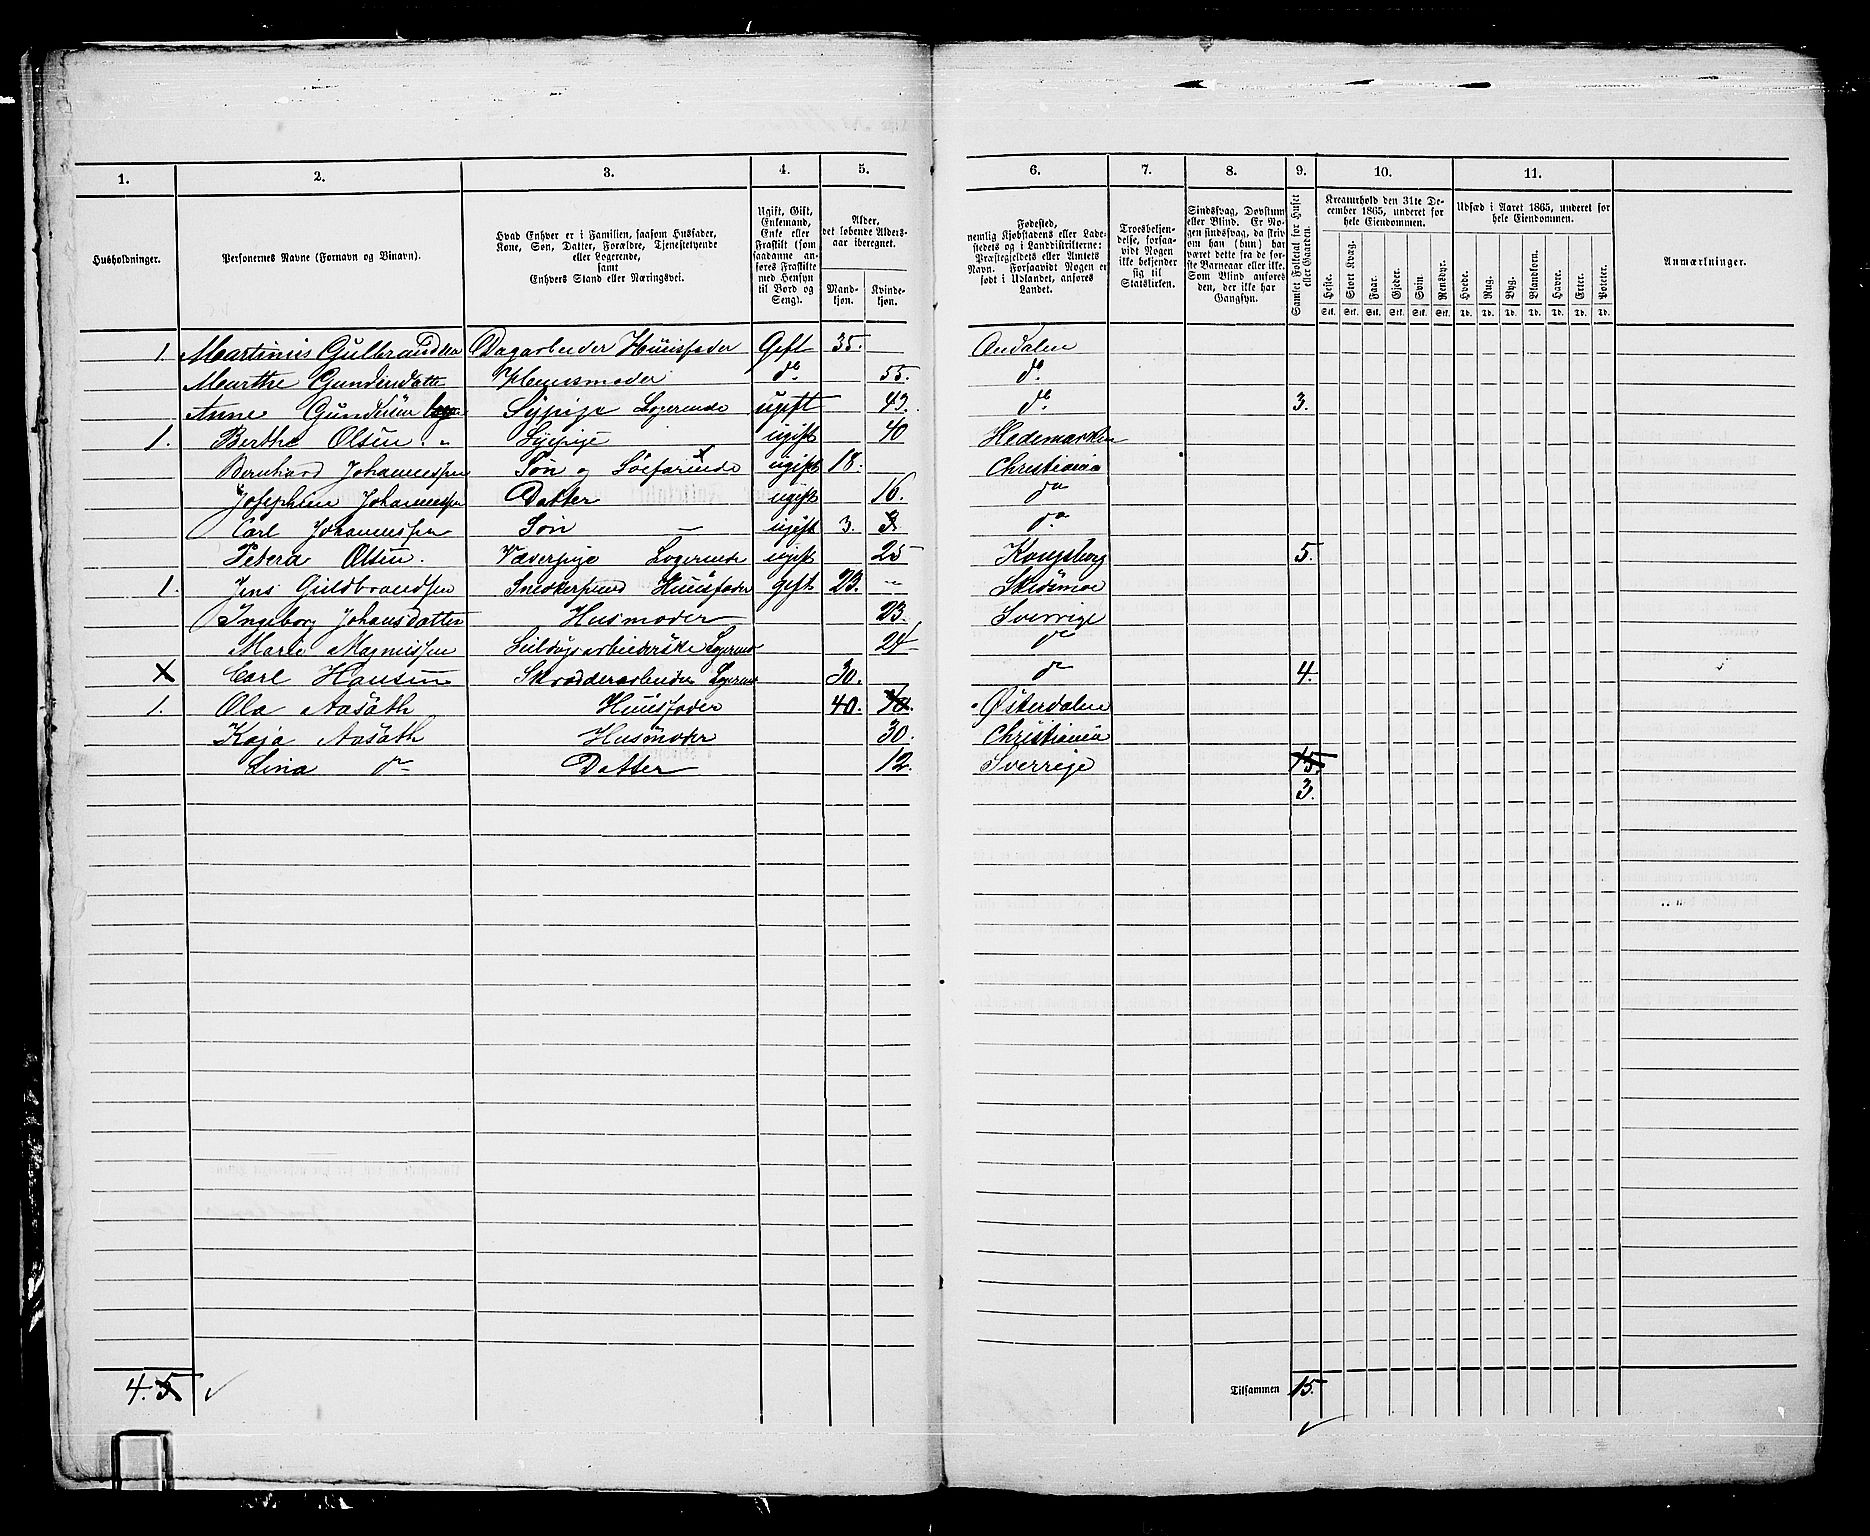 1. 2. 3. 4. 5. 6. 7. 8. 9. 10. 11.
Husholdninger.
Personernes Navne (Fornavn og Binavn).
Hvad Enhver er i Familien, saasom Husfader,
Kone, Søn, Datter, Forældre, Tjenestetyende
eller Logerende,
samt
Enhvers Stand eller Næringsvei.
Ugift, Gift,
Enkemand,
Enke eller
Fraskilt (som
saadanne an-
føres Fraskilte
med Hensyn
til Bord og
Seng).
Alder,
det løbende Alders-
aar iberegnet.
Mand-
kjøn.
Kvinde-
kjøn.
Fødested,
nemlig Kjøbstadens eller Lade-
stedets og i Landdistrikterne:
Præstegjeldets eller Amtets
Navn. Forsaavidt Nogen er
født i Udlandet, anføres
Landet.
Troesbekjen-
delse, forsaa-
vidt Nogen
ikke bekjender
sig til
Statskirken.
Sindssvag, Døvstum
eller Blind. Er No-
gen sindssvag, da skriv
om han (hun) har
været dette fra de før-
ste Barneaar eller ikke.
Som Blind anføres
den, der ikke har
Gangsyn.
Samlet Folketal for Huset
eller Gaarden.
Kreaturhold den 31te De-
cember 1865, underet for
hele Eiendommen.
Heste. Stort Kvæg. Faar. Gjeder. Svin. Rensdyr.
Stk. Stk. Stk. Stk. Stk. Stk.
Udsæd i Aaret 1865, underet for
hele Eiendommen.
Hvede. Rug. Byg. Blandkorn. Havre. Erter. Poteter.
Td. Td. Td. Td. Td. Td. Td.
Anmærkninger.
1. Martinus Gulbrandsen Dagarbeider Huusfader Gift 35. Ondalen
Marthe Gundersdatter Huusmoder do 55. do
Anne Gundersen Sypige Logerende ugift 43. do 3.
1. Berthe Olsen Sypige ugift 40 Hedemarken
Bernhard Johannessen Søn og Søefarende ugift 18. Christiania
Josephine Johannessen Datter ugift 16. do
Carl Johannessen Søn ugift 3. 3. do
Petera Olsen. Væverpige Logerende ugift 25 Kongsberg 5.
1. Jens Guldbrandsen Snedkersvend Huusfader gift 23. Skedsmoe
Ingeborg Johansdatter Husmoder 23. Sverrige
Marie Magnussen Logerende 24 do
X Carl Hansen Skrædderarbeider Logerende 30. do 4.
1. Ola Aasæth Huusfader 40. 40. Østerdalen
Kaja Aasæth Husmoder 30. Christiania
Lina do Datter 12. Sverrige 15.
3.
4. 5.
Tilsammen 15.